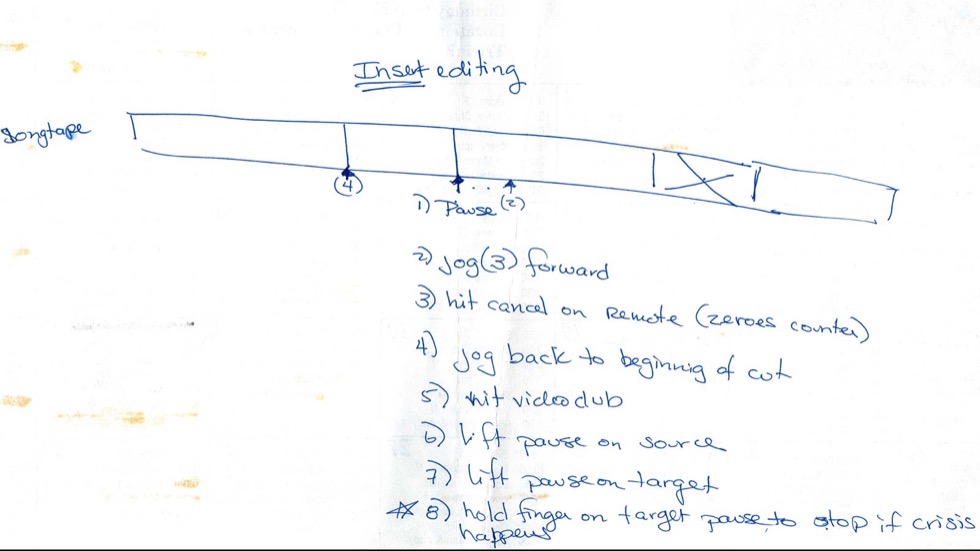 Insert editing
Songtape
(4)
1) Pause (2)
2) jog(3) forward
3) hit cancel on remote (zeroes counter)
4) jog back to beginnig of cut
5) hit videodub
6) lift pause on source
7) lift pause on target
8) hold finger on target pause to stop if crisis
happens